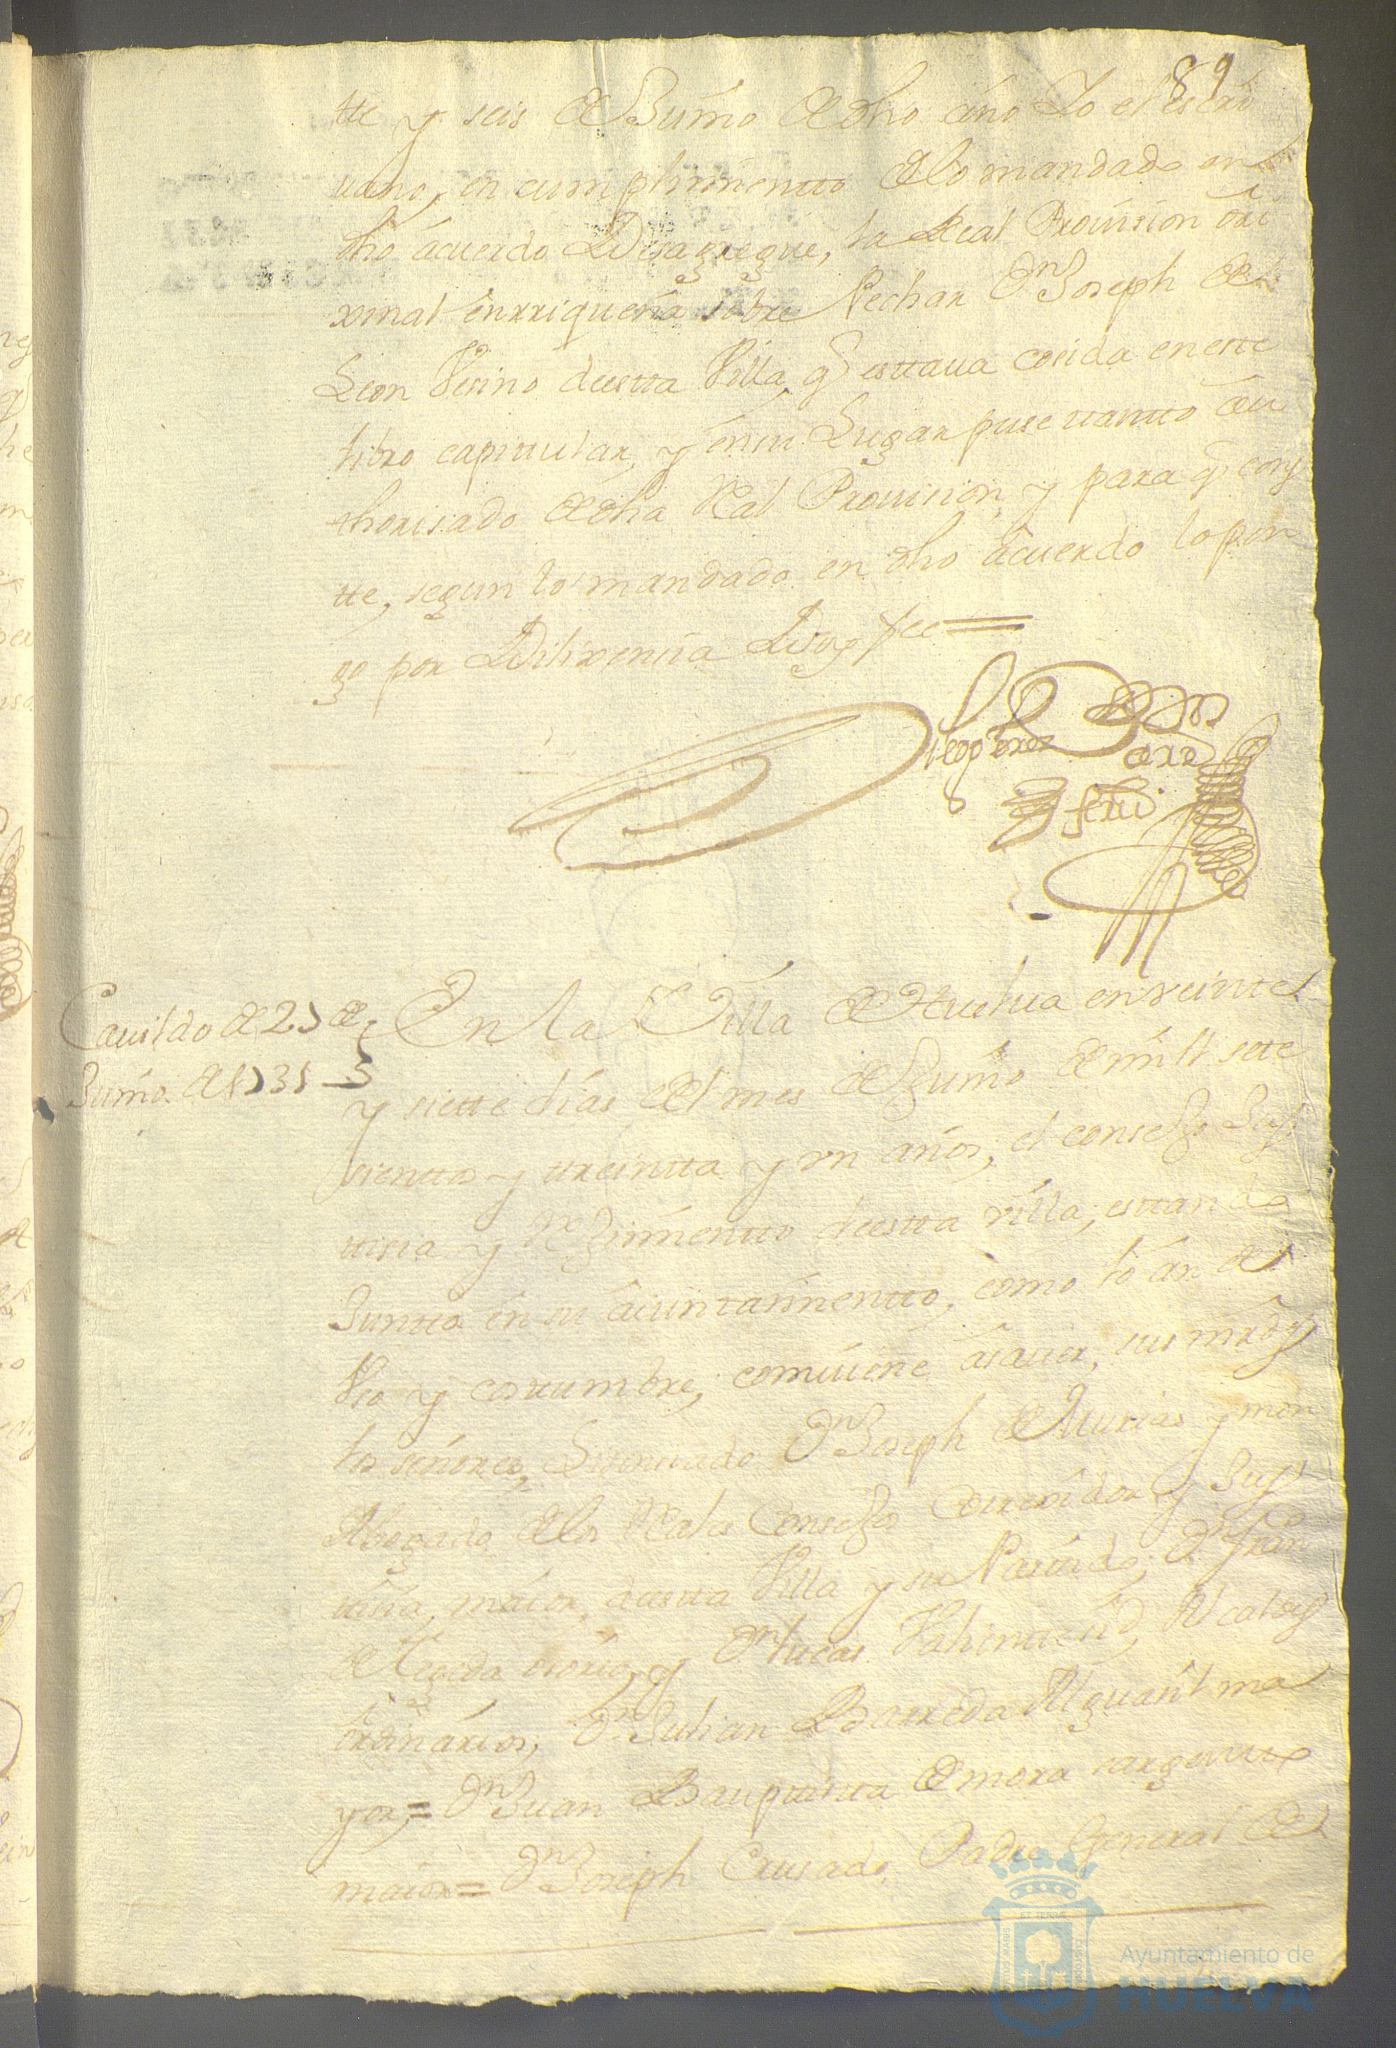 89
tte y seis de Junio de dho año Yo el escri
uano, en cumplimientto de lo mandado en
dho acuerdo Desagregue, la Real Prouision ori
xinal enrriqueña sobre Pechar Dn Joseph de
Leon Vesino deestta Villa, q esttaua cosida en este
libro capitular, y en su Lugar puse ttantto au
thorisado de dha Real Prouision, y para q cons
tte, segun lo mandado en dho acuerdo lo pon
go por Dilixencia Doy fee
Cauildo de 27 de
Junio de 1731
En la Villa de Huelua en veinte
y siette dias del mes de Junio de mill sete
sienttos y treintta y un años, el consejo Jus
tisia y Reximientto deestta villa, esttando
Juntto en su aiuntamientto, como lo an de
Vso y costumbre, comuiene asauer, sus mrds
los señores Lisenciado Dn Joseph de Murias y mon
Abogado de los Reales Consejos Correxidor y Jus
tisia maior deestta Villa y su Partido, Dn Fran
de Texada osorio, y Dn Lucas Tahinttend Alcaldes
ordinarios, Dn Julian Barreda Alguasil ma
yor = Dn Juan Baupttista de mora sargentto
maior = Dn Joseph Crusado Padre General de
Ayuntamiento de
HUELVA